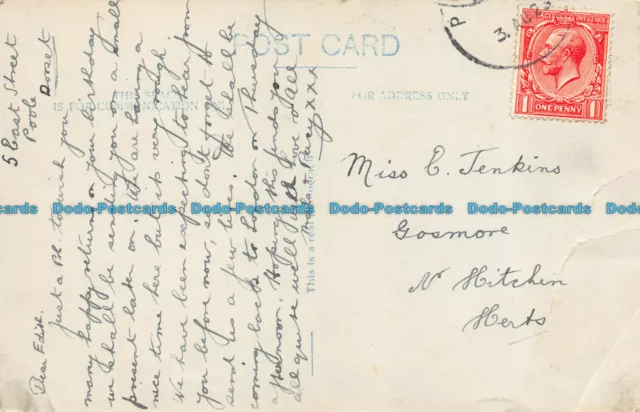 POST CARD
THIS SPACE
IS FOR COMMUNICATION ONLY
FOR ADDRESS ONLY
5 East Street
Poole
Dorset
Dear Edith.
Just a P.C. to wish you
many happy returns on your birthday
we shall be sending you on a small
present later on. We are having a
nice time here but it's very rough
We have been expecting to hear from
you before now, so don't forget to
send us a few lines. We shall be
coming back to London on Thursday
afternoon. Hoping this finds you
all quite well with love to all
xxx
This is a real
Miss E. Jenkins
Gosmore
Nr Hitchin
Herts
3. AU
POSTAGE REVENUE
1 ONE PENNY 1
Dodo-Postcards Dodo-Postcards Dodo-Postcards Dodo-Postcards
Dodo-Postcards Dodo-Postcards Dodo-Postcards Dodo-Postcards